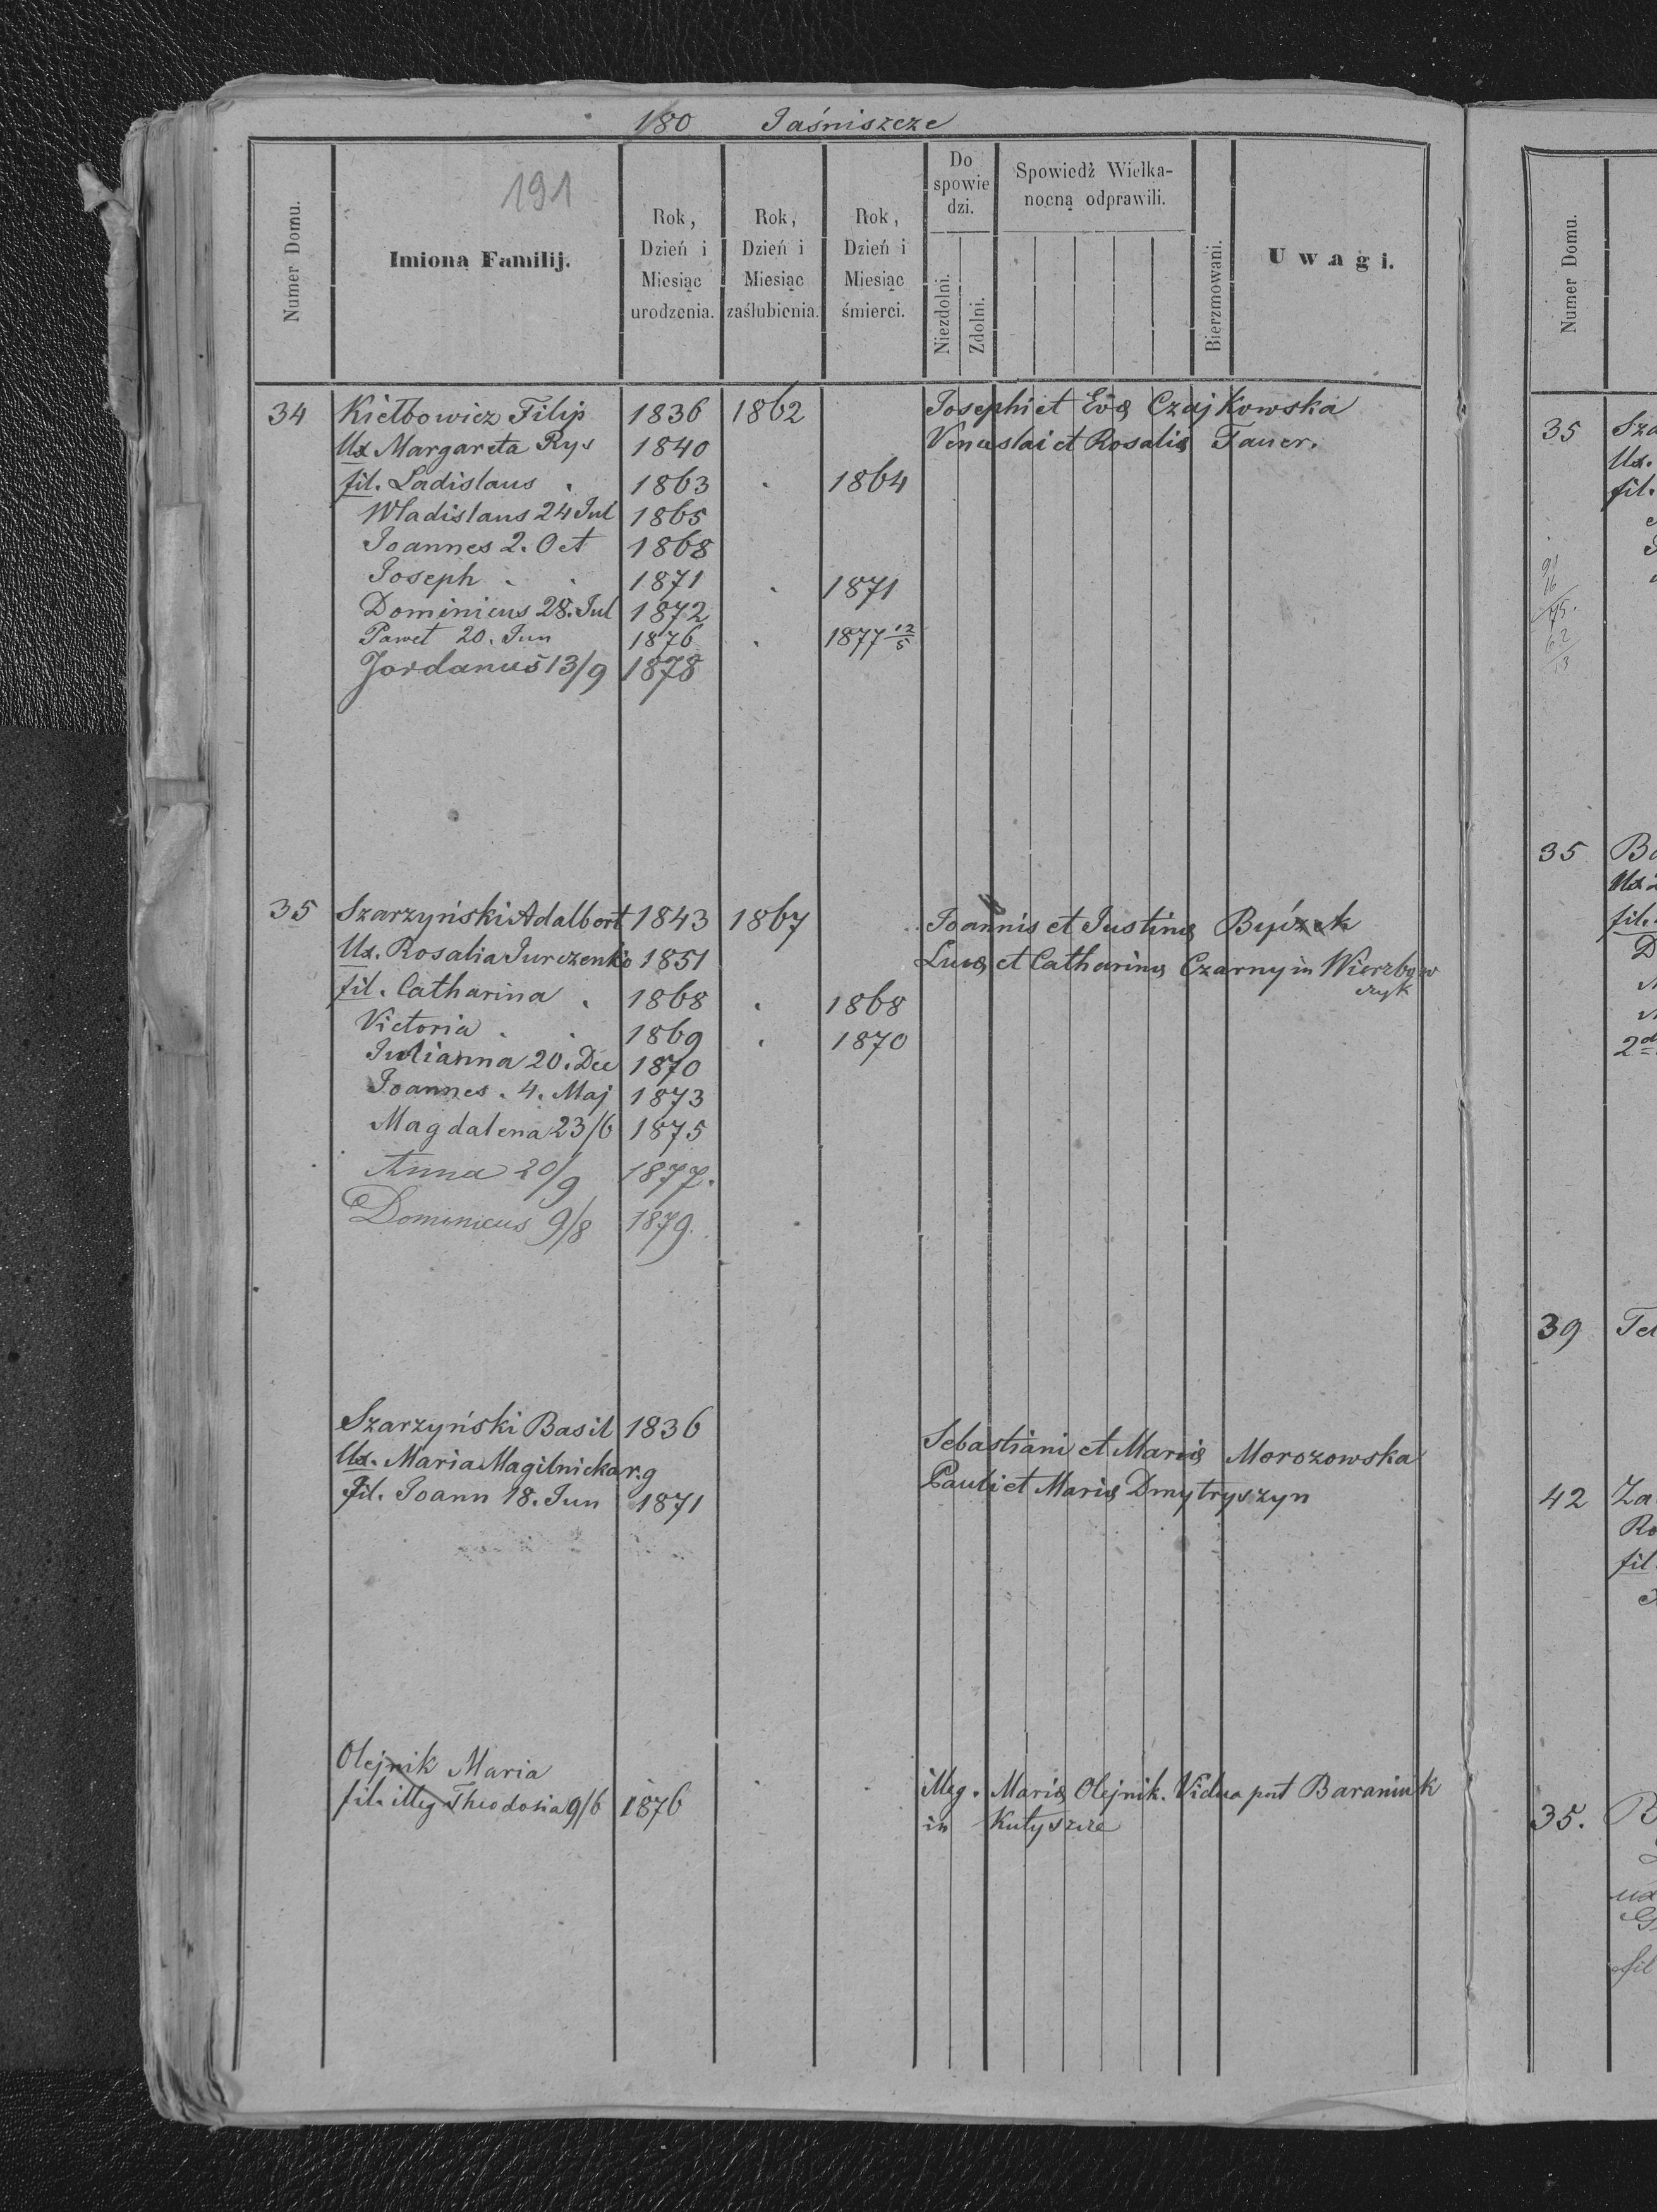 180 Jaśniszcze
191
Numer Domu.
Imiona Familij.
Rok, Dzień i Miesiąc urodzenia.
Rok, Dzień i Miesiąc zaślubienia.
Rok, Dzień i Miesiąc śmierci.
Do spowiedzi.
Niezdolni.
Zdolni.
Spowiedź Wielkanocną odprawili.
Bierzmowani.
Uwagi.
34 Kiełbowicz Filip 1836 1862 Josephi et Evæ Czajkowska
Ux Margareta Rys 1840 Venceslai et Rosaliæ Tauer.
fil. Ladislaus . 1863 . 1864
Wladislaus 24 Jul 1865
Joannes 2. Oct 1868
Joseph . . 1871 . 1871
Dominicus 28. Jul 1872
Paweł 20. Jun 1876 . 1877 12/5
Jordanus 13/9 1878
35 Szarzyński Adalbert 1843 1867 Joannis et Justinæ
Ux. Rosalia Jurczenko 1851 Lucæ et Catharinæ Czarny in Wierzbowczyk
fil. Catharina . 1868 . 1868
Victoria . . 1869 . 1870
Julianna 20. Dec 1870
Joannes . 4. Maj 1873
Magdalena 23/6 1875
Anna 20/9 1877.
Dominicus 9/8 1879.
Szarzyński Basil 1836 Sebastiani et Mariæ Morozowska
Ux. Maria Magilnicka r.g Pauli et Mariæ Dmytryszyn
fil. Joann 18. Jun 1871
Olejnik Maria
fil. illeg Theodosia 9/6 1876 illeg. Mariæ Olejnik. Vidua post Baraniuk
in Kutyszcze
Numer Domu.
35
Ux.
fil.
35
Ux
fil.
39
42
fil
35.
ux
fil